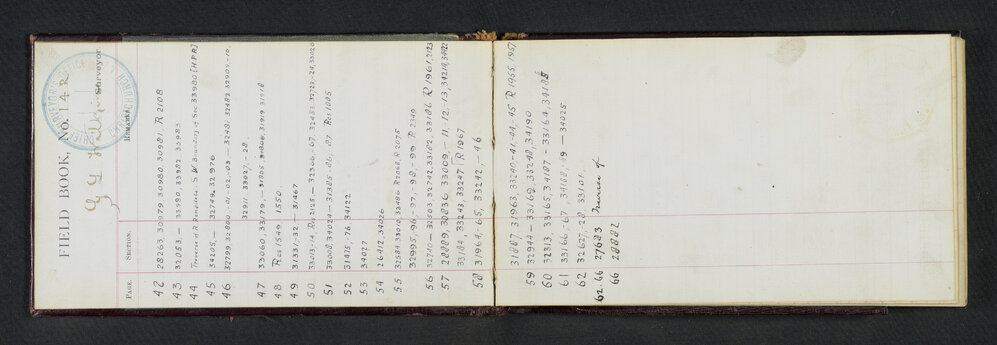 FIELD BOOK, No. 14 R
Surveyor
PAGE. SECTION. REMARKS.
42 28263, 30979, 30980, 30981. R 2108
43 32083, — 33980, 33982, 33983
44 Traverse of R. Rangitata S.W. Boundary of Sec 33980 [H.P.R]
45 34205, — 32749, 32976
46 32799, 32800, -01-02,-03 — 32481, 32482, 32909,-10,
32911 33027, -28.
47 33060, 33179, — 31805, 31806, 31919, 31918
48 Res 1549, 1550.
49 31331, 32 — 31467
50 33013-14, Re 2125 — 32306, 67, 32483, 32723, -24, 33020
51 33008, 34024 — 31385, 86, 87 Res 1885
52 31475, 76, 34122
53 34027
54 26412, 34026
55 32584, 33010, 33486 R 2068, R 2075
32995, 96, -97, -98, -99 R 2349
56 32740 — 32503, 32742, 33182, 33186 R 1961, 2123
57 28889, 30836, 33009, -11, 12, -13, 34219, 34922
33184, 33243, 33247 R 1967
58 31964, -65, 33242, -46
31887, 31963, 33240-41, 44, 45 R 1955, 1957
59 32944 — 33169, 33248, 34190
60 32313, 33165, 34187 — 33164, 34185
61 33166, -67, 34188, 89 — 34025.
62 32627, -28, 33101.
62.66 27683 Traverse of
66 28882